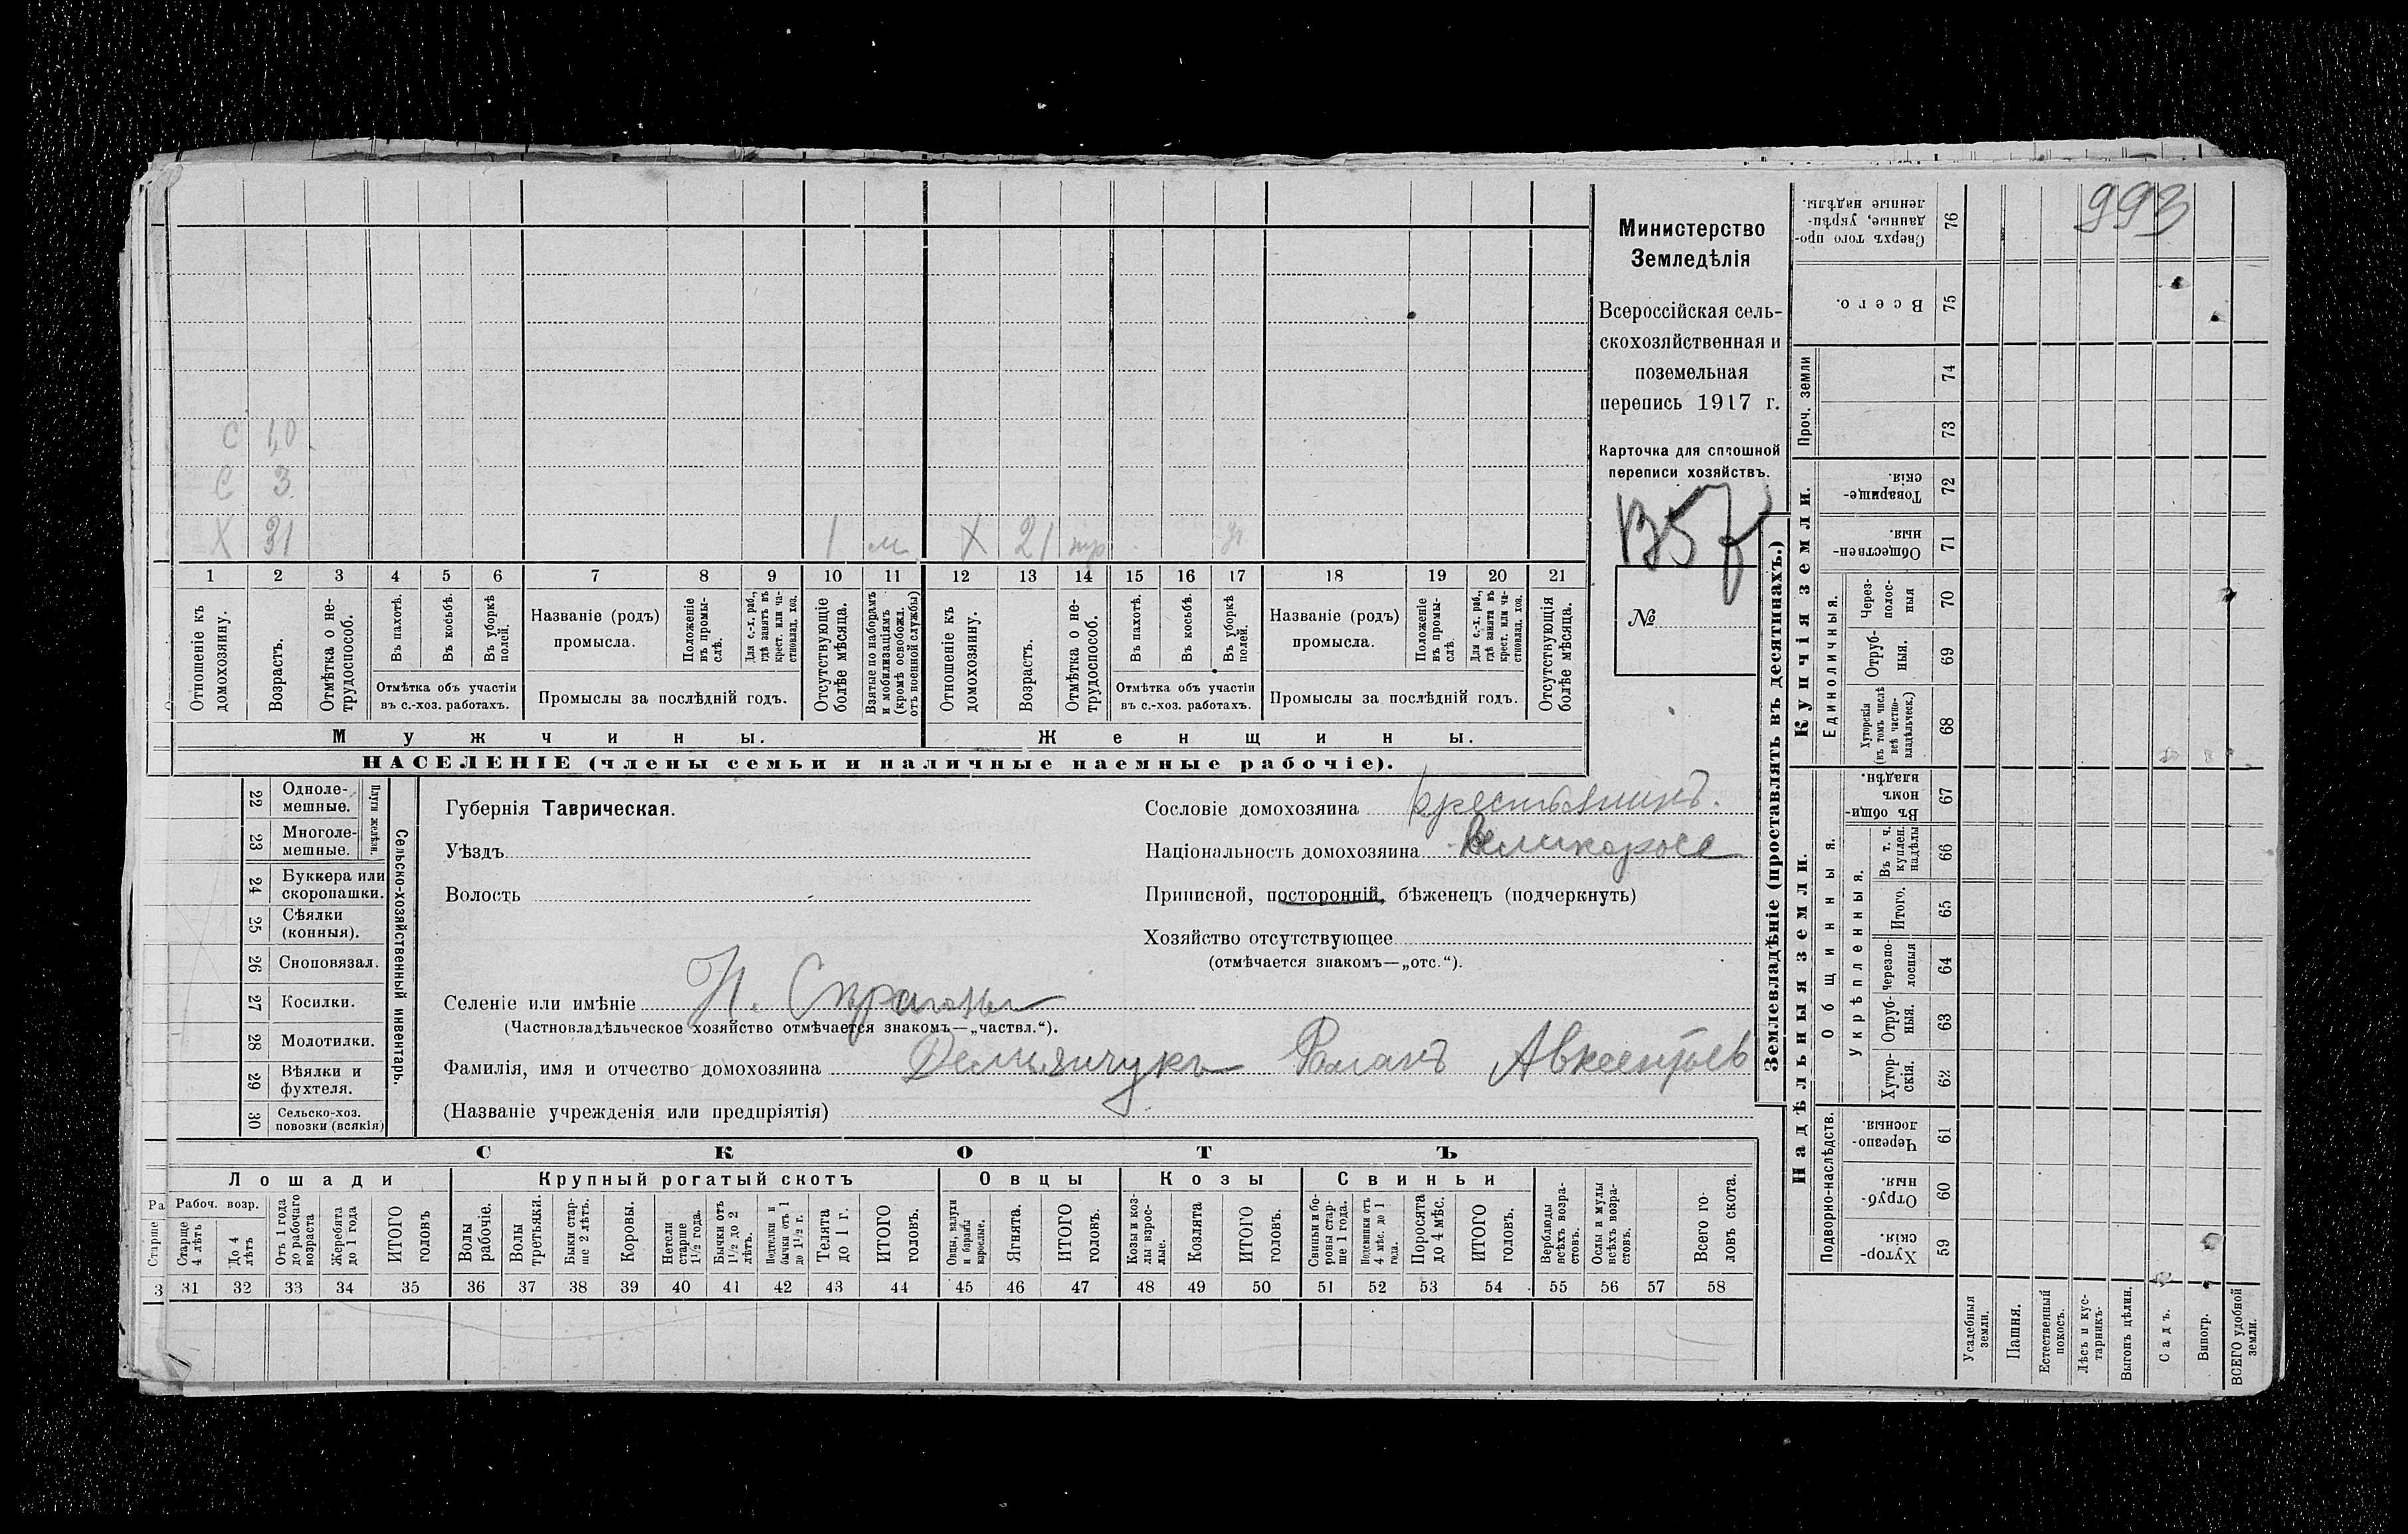 993
Министерство
Земледѣлія
Всероссійская сель-
скохозяйственная и
поземельная
перепись 1917 г.
Карточка для сплошной
переписи хозяйствъ.
№
С 1,0
С 3
Х 31 1 м Х 21
1 2 3 4 5 6 7 8 9 10 11 12 13 14 15 16 17 18 19 20 21
Отношеніе къ домохозяину.
Возрастъ.
Отмѣтка о не-трудоспособ.
Въ пахотѣ.
Въ косьбѣ.
Въ уборкѣ полей.
Отмѣтка объ участіи
въ с.-хоз. работахъ.
Названіе (родъ)
промысла.
Положеніе въ промы-слѣ.
Для с.-х. раб., гдѣ занятъ въ крест. или ча-стновлад. хоз.
Промыслы за послѣдній годъ.
Отсутствующіе болѣе мѣсяца.
Взятые по наборамъ и мобилизаціямъ (кромѣ освобожд. отъ военной службы)
Отношеніе къ домохозяину.
Возрастъ.
Отмѣтка о не-трудоспособ.
Въ пахотѣ.
Въ косьбѣ.
Въ уборкѣ полей.
Отмѣтка объ участіи
въ с.-хоз. работахъ.
Названіе (родъ)
промысла.
Положеніе въ промы-слѣ.
Для с.-х. раб., гдѣ занята въ крест. или ча-стновлад. хоз.
Промыслы за послѣдній годъ.
Отсутствующія болѣе мѣсяца.
Мужчины.
Женщины.
НАСЕЛЕНІЕ (члены семьи и наличные наемные рабочіе).
Сельско-хозяйственный инвентарь.
Плуги желѣзн.
22 Одноле-
мешные.
23 Многоле-
мешные.
24 Буккера или
скоропашки.
25 Сѣялки
(конныя).
26 Сноповязал.
27 Косилки.
28 Молотилки.
29 Вѣялки и
фухтеля.
30 Сельско-хоз.
повозки (всякія)
Губернія Таврическая.
Уѣздъ
Волость
Сословіе домохозяина крестьянинъ.
Національность домохозяина Великоросс
Приписной, посторонній, бѣженецъ (подчеркнуть)
Хозяйство отсутствующее
(отмѣчается знакомъ—„отс.“).
Селеніе или имѣніе Н.
(Частновладѣльческое хозяйство отмѣчается знакомъ—„частвл.“).
Фамилія, имя и отчество домохозяина Демьянчукъ Романъ Авксентьев
(Названіе учрежденія или предпріятія)
СКОТЪ
Лошади
Крупный рогатый скотъ
Овцы
Козы
Свиньи
Ра
Старше
Рабоч. возр.
Старше 4 лѣтъ
До 4 лѣтъ
Отъ 1 года до рабочаго возраста
Жеребята до 1 года
ИТОГО головъ
Волы рабочіе.
Волы третьяки.
Быки стар-ше 2 лѣтъ.
Коровы.
Нетели старше 1½ года.
Бычки отъ 1½ до 2 лѣтъ.
Подтелки и бычки отъ 1 до 1½ г.
Телята до 1 г.
ИТОГО головъ.
Овцы, валухи и бараны взрослые.
Ягнята.
ИТОГО головъ.
Козы и коз-лы взрос-лые.
Козлята
ИТОГО головъ.
Свиньи и бо-ровы стар-ше 1 года.
Подсвинки отъ 4 мѣс. до 1 года.
Поросята до 4 мѣс.
ИТОГО головъ.
Верблюды всѣхъ возра-стовъ.
Ослы и мулы всѣхъ возра-стовъ.
Всего го-ловъ скота.
3 31 32 33 34 35 36 37 38 39 40 41 42 43 44 45 46 47 48 49 50 51 52 53 54 55 56 57 58
Землевладѣніе (проставлять въ десятинахъ.)
Купчія земли.
Надѣльныя земли.
Сверхъ того про-данные, укрѣп-ленные надѣлы. 76
Всего. 75
Проч. земли
74
73
Товарище-скія. 72
Обществен-ныя. 71
Единоличныя.
Через-полос-ныя 70
Отруб-ныя. 69
Хуторскія (въ томъ числѣ всѣ частно-владѣльческ.) 68
Общинныя.
Въ общи-номъ владѣн. 67
Укрѣпленныя.
Въ т. ч. куплен. надѣлы 66
Итого. 65
Черезпо-лосныя 64
Отруб-ныя. 63
Хутор-скія. 62
Подворно-наслѣдств.
Черезпо-лосныя. 61
Отруб-ныя. 60
Хутор-скія. 59
Усадебныя земли.
Пашня.
Естественный покосъ.
Лѣсъ и кус-тарникъ.
Выгонъ цѣлин.
Садъ.
Виногр.
ВСЕГО удобной земли.